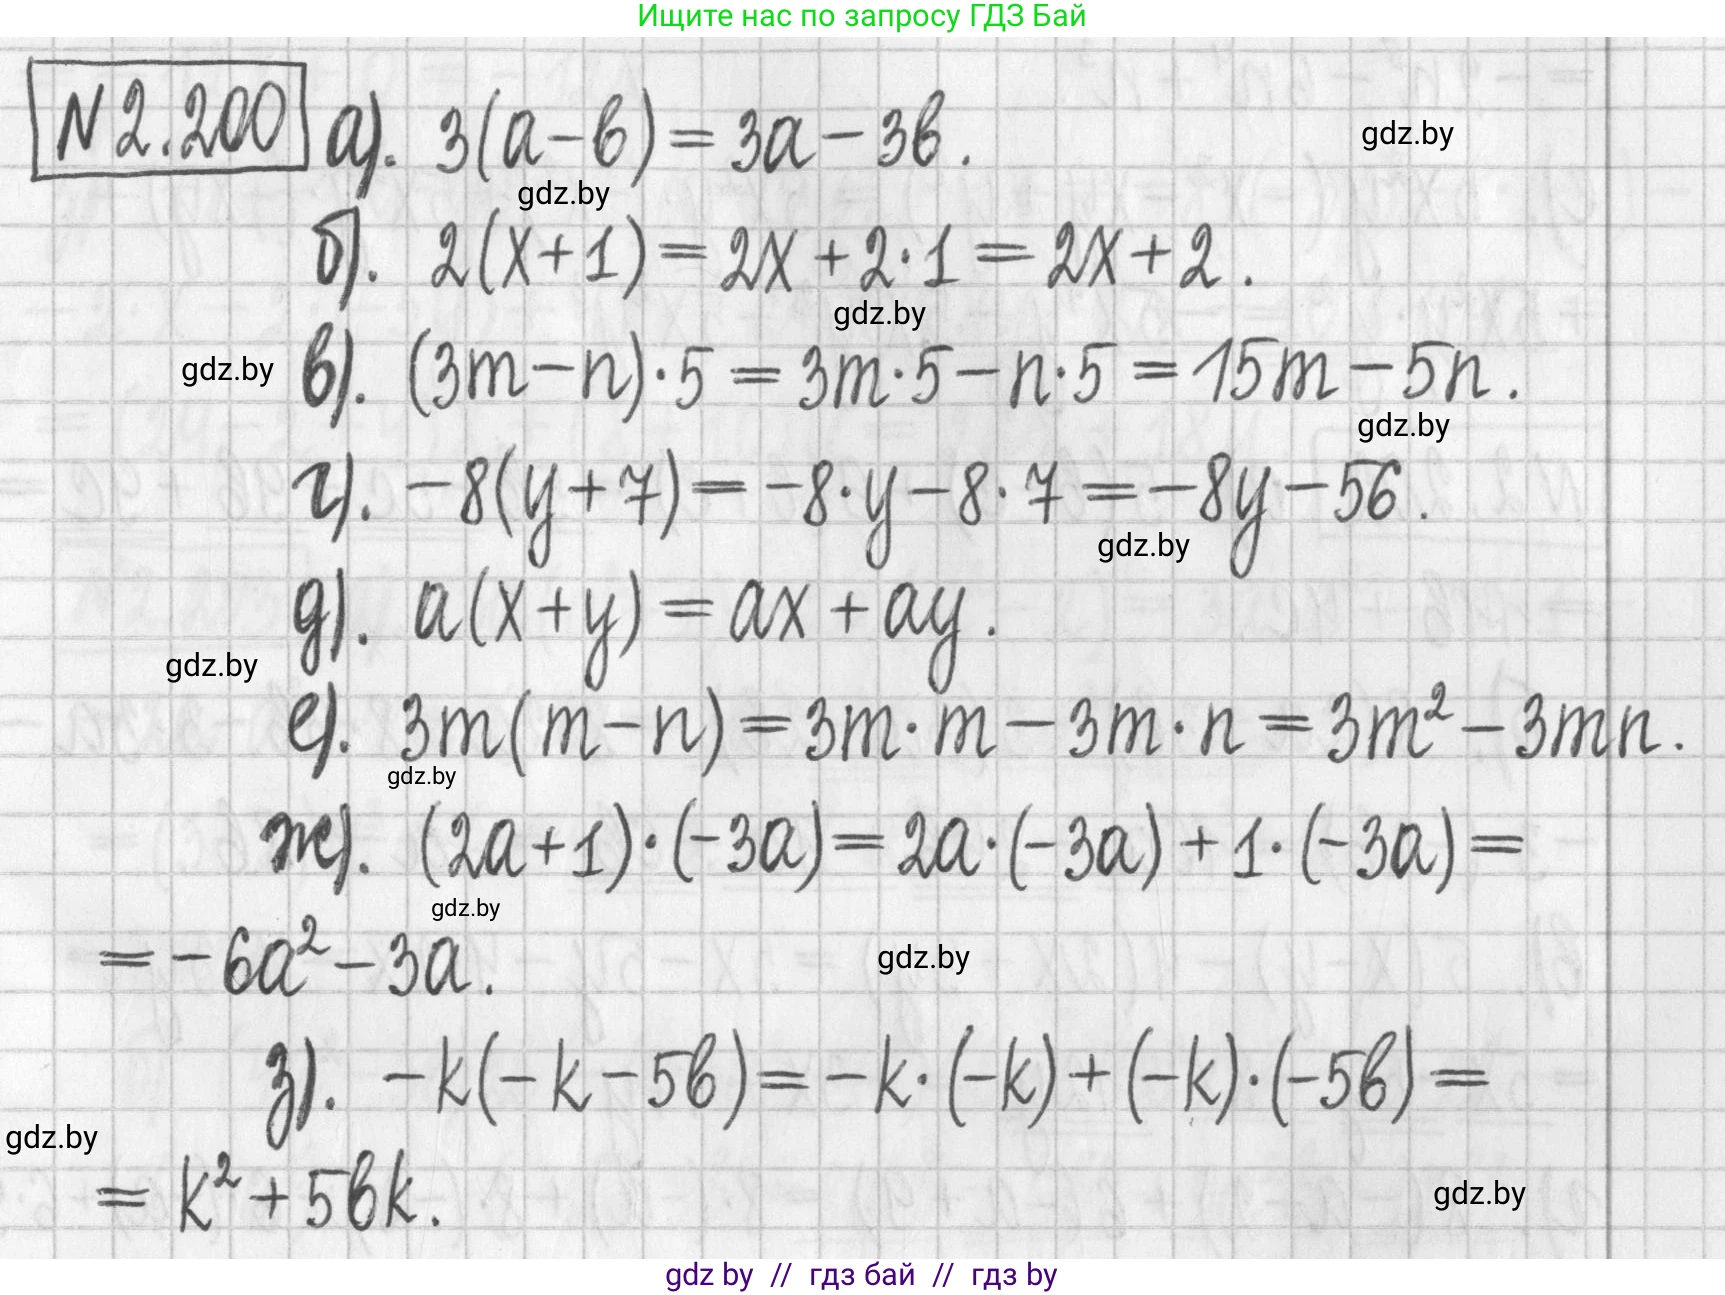 Ищите нас по запросу ГДЗ Бай
N 2.200 а). 3(a-b) = 3a - 3b.
gdz.by
gdz.by
б). 2(x+1) = 2x + 2·1 = 2x + 2.
gdz.by
gdz.by
в). (3m-n)·5 = 3m·5 - n·5 = 15m - 5n.
gdz.by
г). -8(y+7) = -8·y - 8·7 = -8y - 56.
gdz.by
д). a(x+y) = ax + ay.
gdz.by
е). 3m(m-n) = 3m·m - 3m·n = 3m² - 3mn.
gdz.by
ж). (2a+1)·(-3a) = 2a·(-3a) + 1·(-3a) =
gdz.by
= -6a² - 3a.
gdz.by
з). -k(-k-5b) = -k·(-k) + (-k)·(-5b) =
gdz.by
= k² + 5bk.
gdz.by
gdz by // гдз бай // гдз by